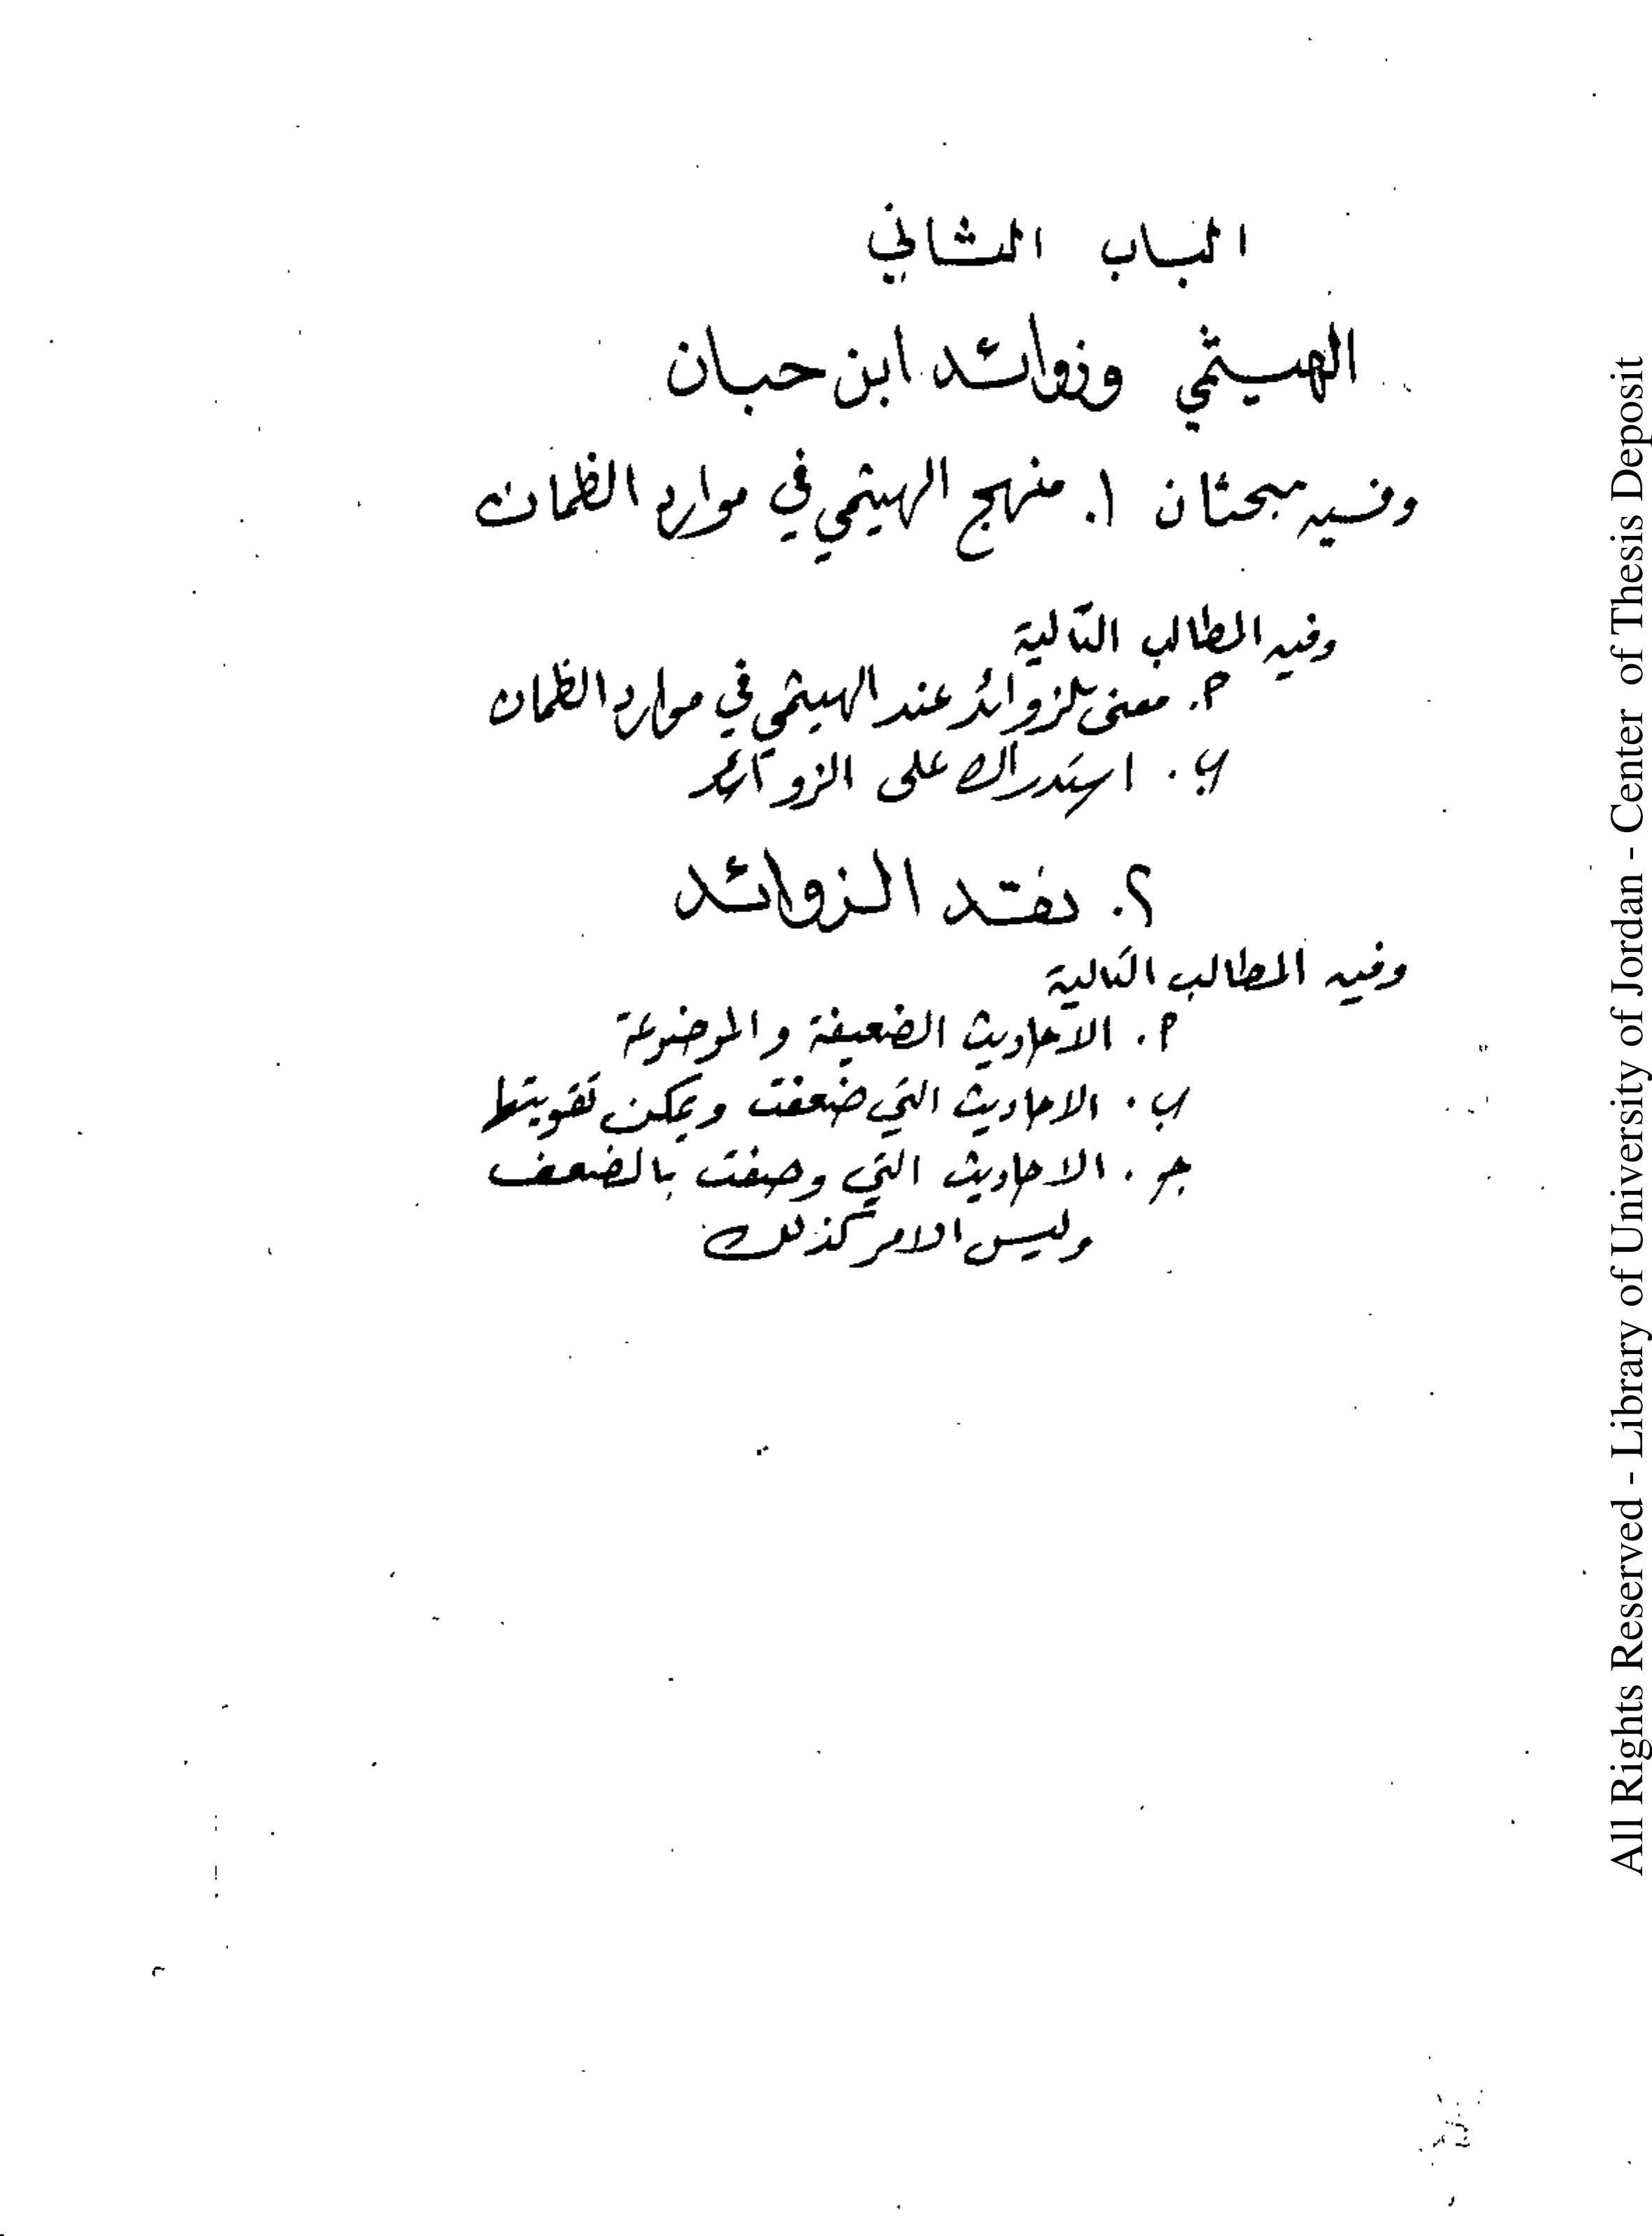 الباب الثاني
الهيثمي وزوائد ابن حبان
وفيه مبحثان ١. منهج الهيثمي في موارد الظمان
وفيه المطالب التالية
أ. معنى الزوائد عند الهيثمي في موارد الظمان
ب. استدراك على الزوائد
٢. نقد الزوائد
وفيه المطالب التالية
أ. الاحاديث الضعيفة والموضوعة
ب. الاحاديث التي ضعفت ويمكن تقويتها
جـ. الاحاديث التي وصفت بالضعف
وليس الامر كذلك
All Rights Reserved - Library of University of Jordan - Center of Thesis Deposit